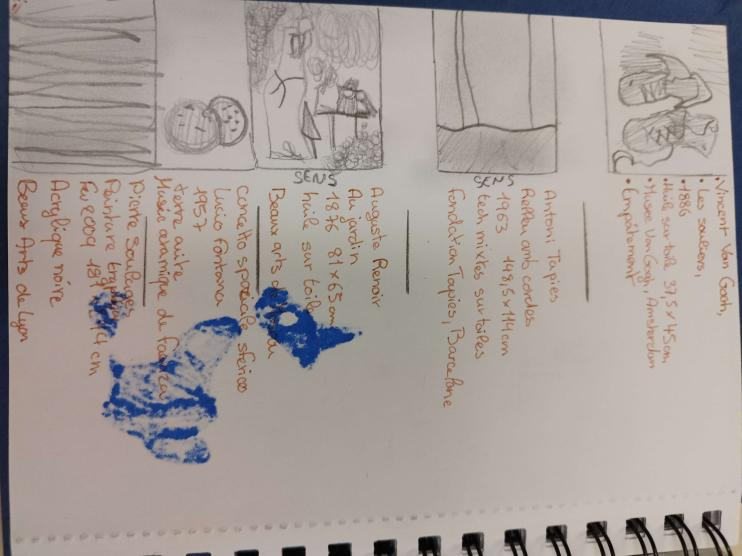 • Vincent Van Gogh,
• Les souliers,
• 1886
• Huile sur toile 37,5 x 45cm
• Musée Van Gogh, Amsterdam
• Empâtement
SENS
Antoni Tapies
Relleu amb cordes
1963 148,5 x 114 cm
tech mixtes sur toiles
fondation Tapies, Barcelone
SENS
Auguste Renoir
Au jardin
1876 81 x 65 cm
huile sur toile
Beaux arts
concetto spaziale sferico
Lucio Fontana
1957
terre cuite
Musée céramique de faenza
Pierre Soulages
Peinture
Fev 2009 cm
Acrylique noire
Beaux Arts de Lyon